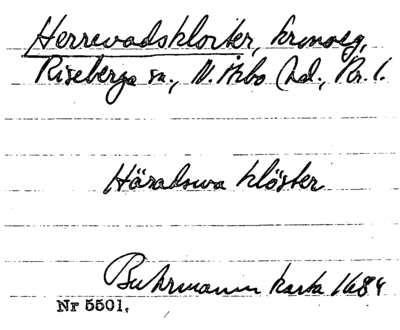 Herrevadskloster, kronoeg,
Riseberga sn., N. Åsbo hd., Kr. l.
Häradswa klöster
Buhrmann karta 1684
Nr 5501.